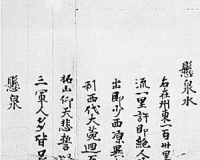 懸泉水
右在州東一百卅里
流一里許即絕人
出即少西涼異
利西伐大菀迴
拓山仰天悲誓
三軍人多皆足
懸泉